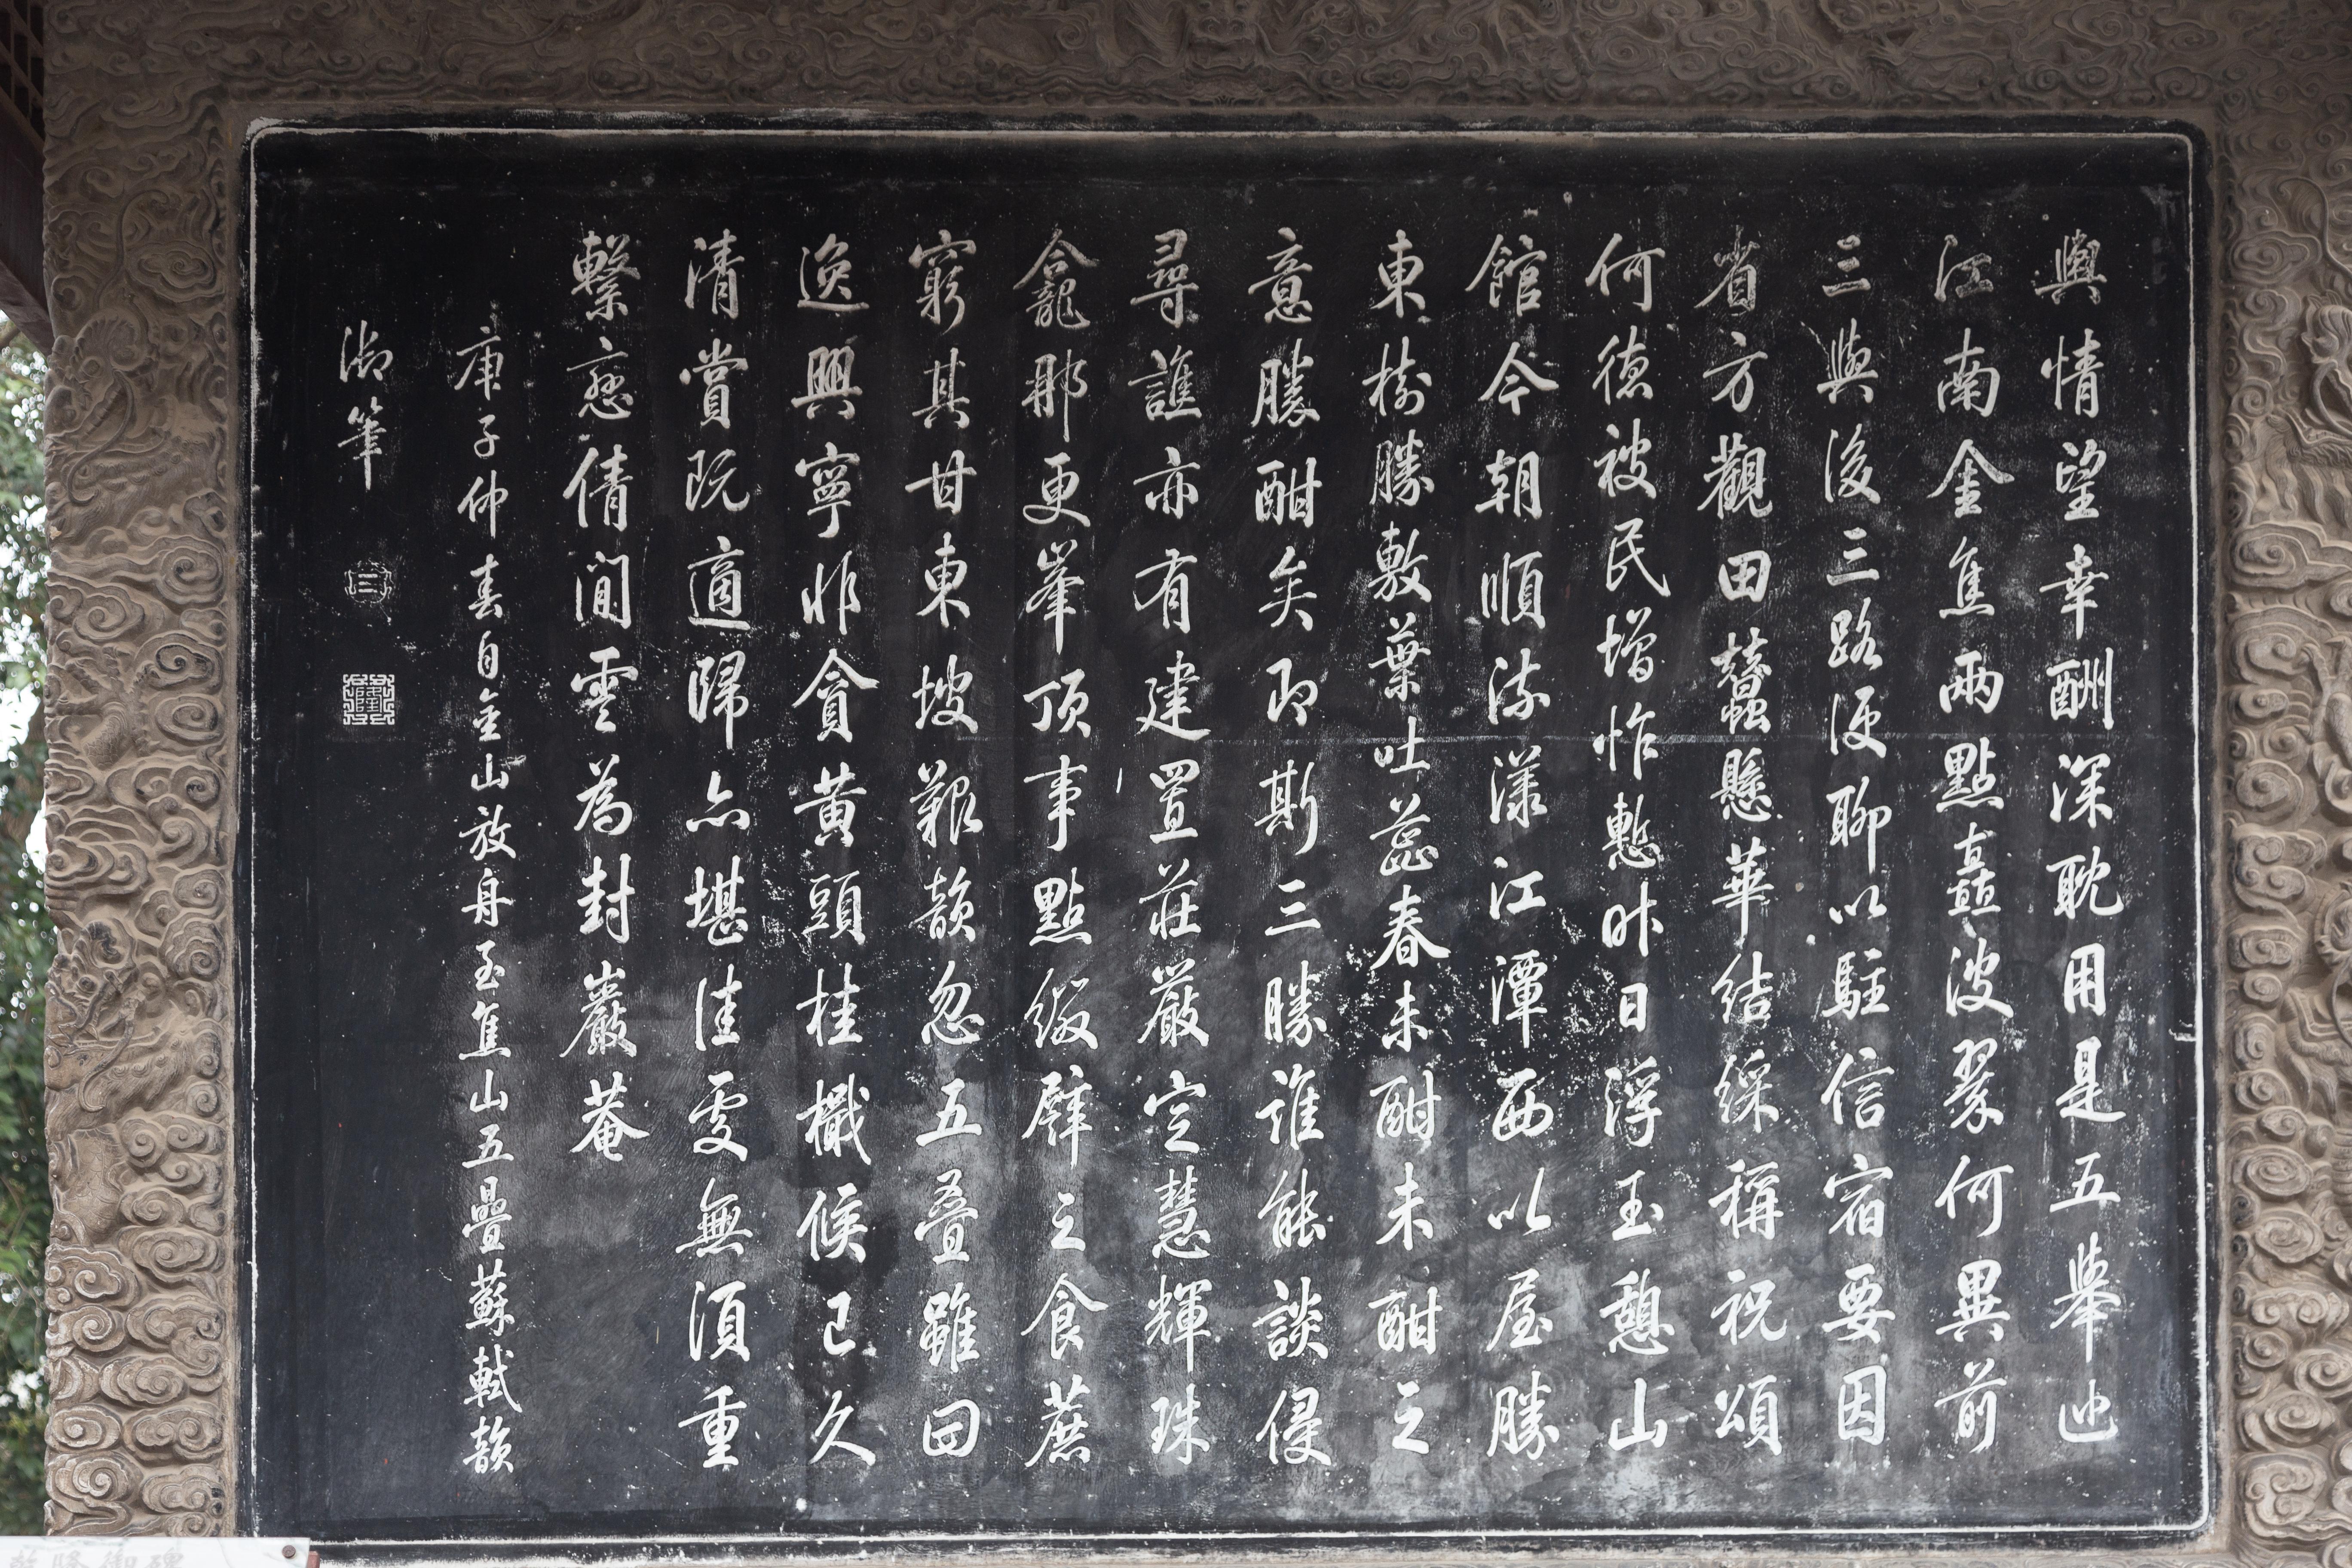 輿情望幸酬深耽用是五舉迆
江南金焦兩點矗波翠何異前
三與後三路便聊以駐信宿要因
省方觀田蠶懸華結綵稱祝頌
何德被民增怍慙昨日浮玉憩山
館今朝順流漾江潭西以屋勝
東樹勝敷葉吐蕊春未酣未酣之
意勝酣矣即斯三勝誰能談侵
尋譙亦有建置莊嚴定慧輝珠
龕那更峯頂事點綴臂之食蔗
窮其甘東坡艱韻忽五疊雖曰
逸興寧非貪黃頭桂檝候已久
清賞既適歸亦堪佳處無須重
繫戀倩閒雲為封巖菴
庚子仲春自金山放舟至焦山五疊蘇軾韻
御筆